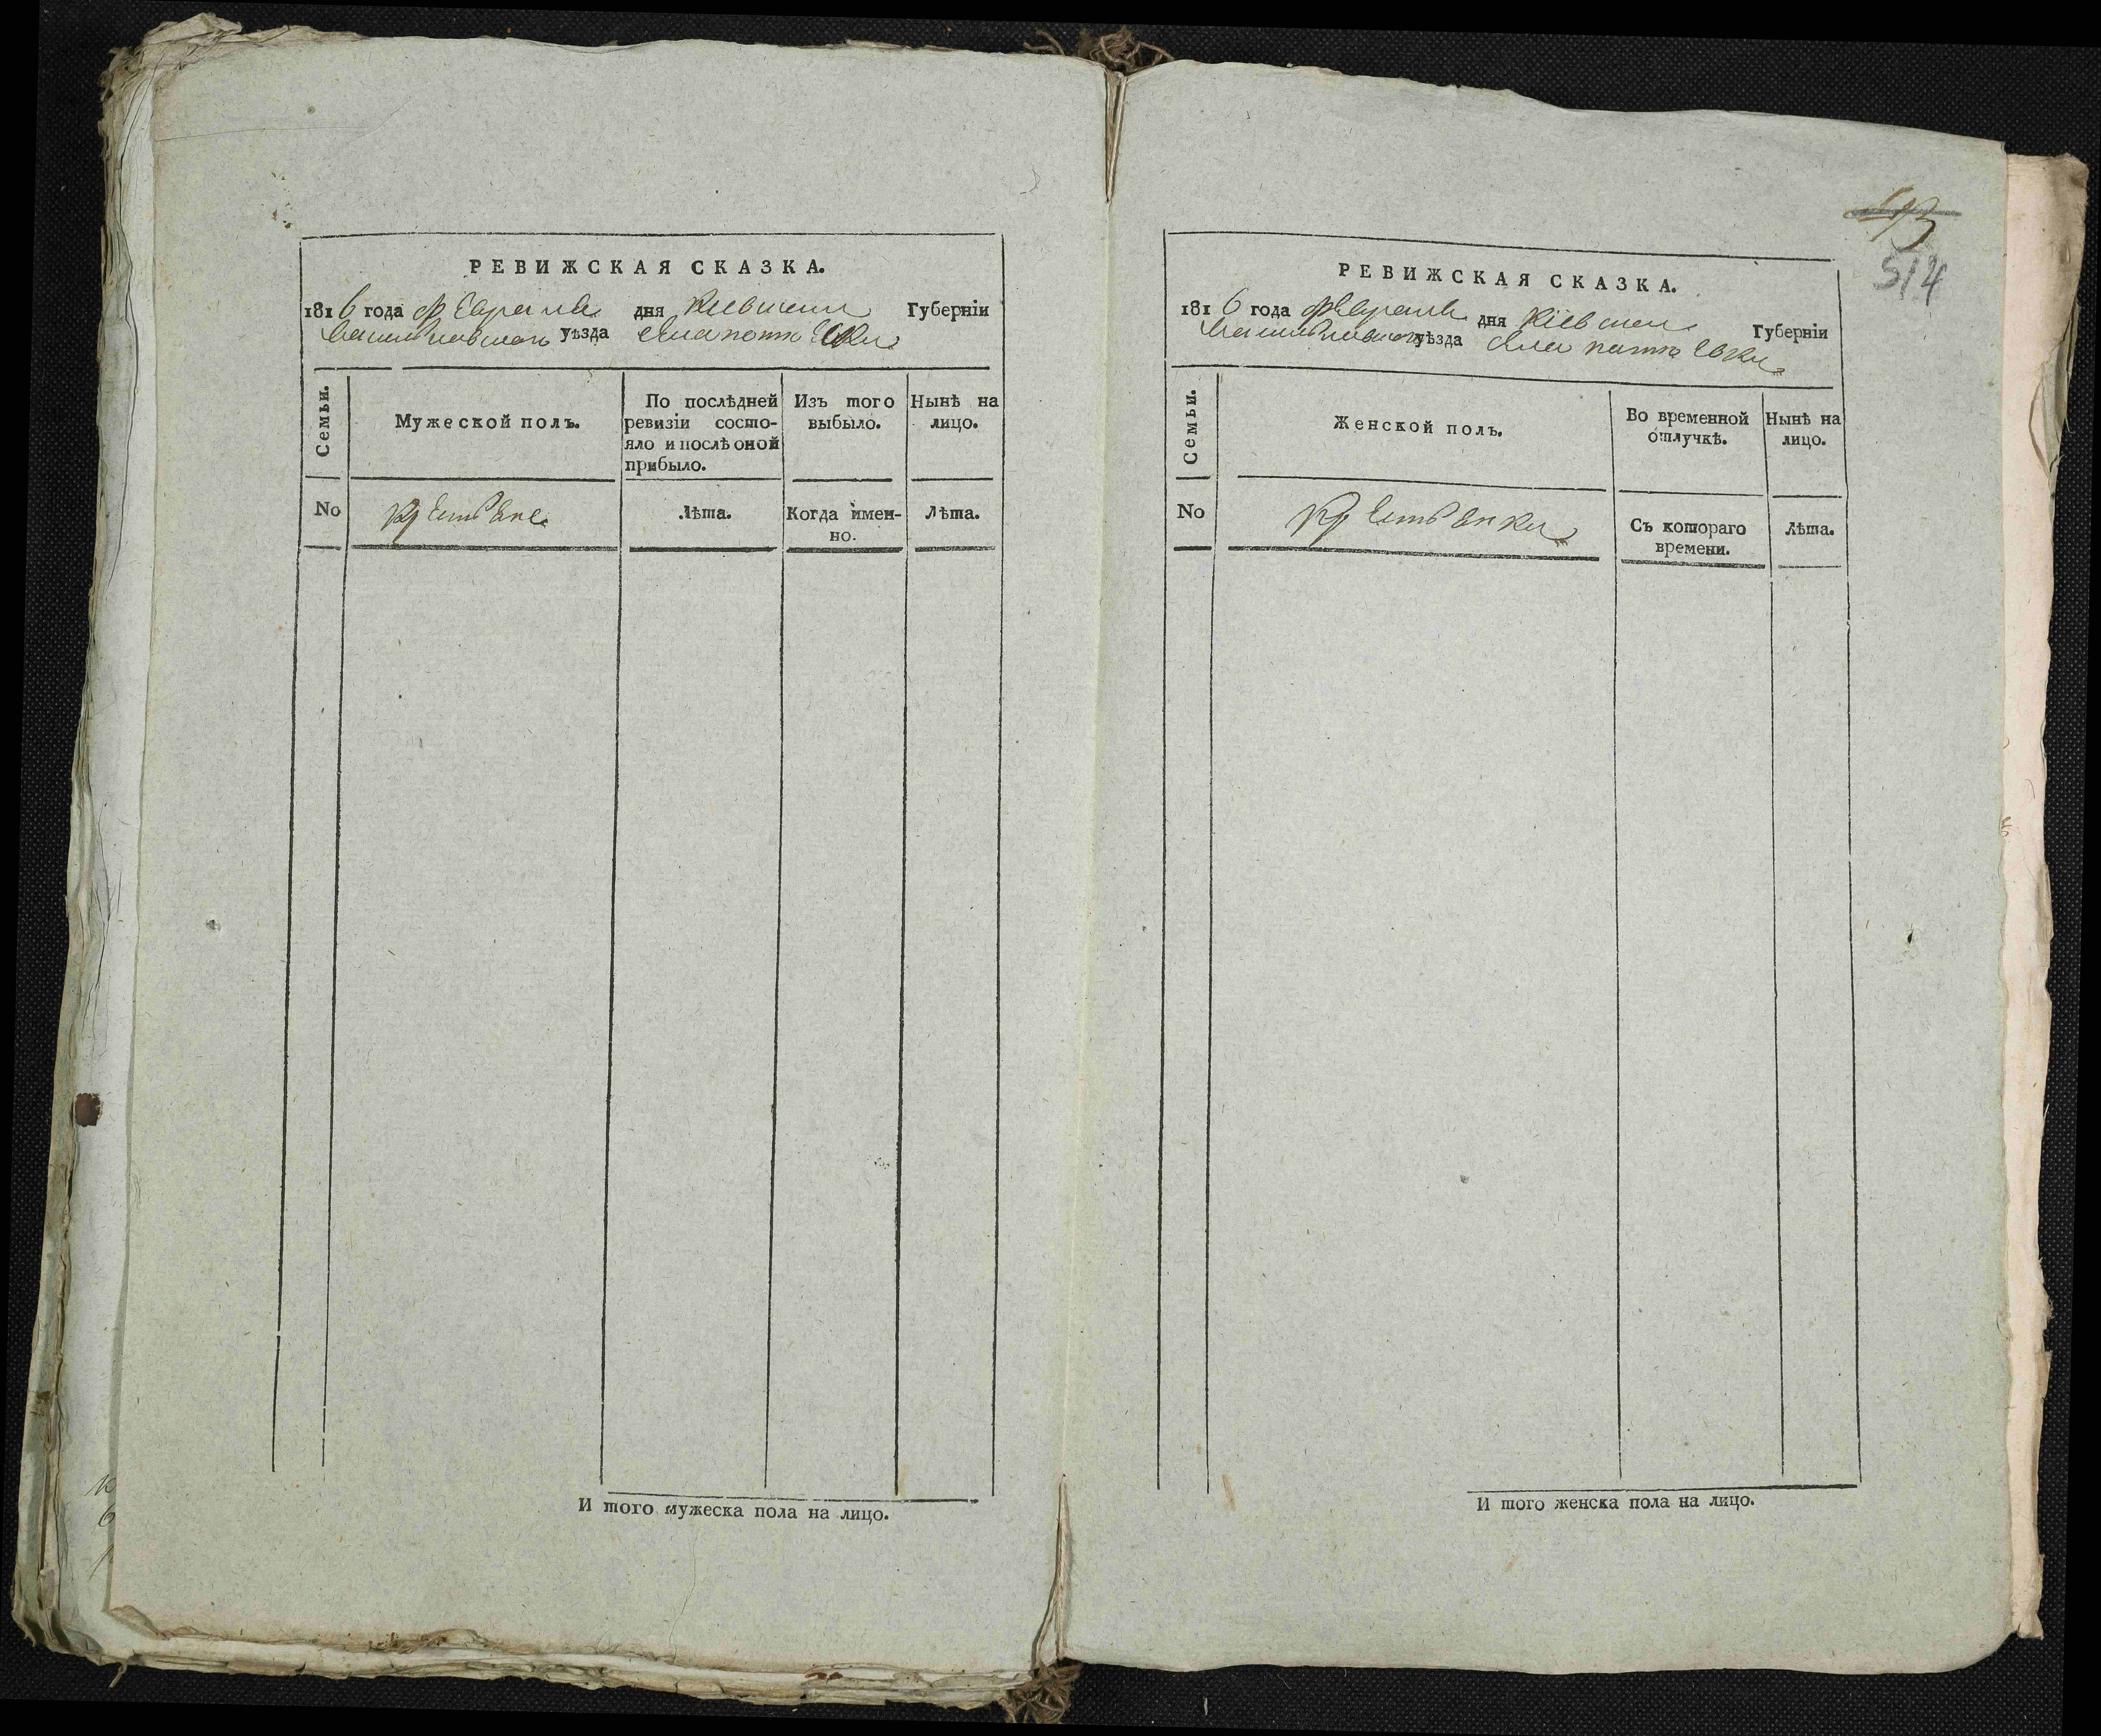 РЕВИЖСКАЯ СКАЗКА.
1816 года Февраля дня Кіевской Губерніи
Васильковскаго уѣзда
Семьи.
Мужеской полъ.
По послѣдней ревизіи состо-
яло и послѣ оной прибыло.
Изъ того выбыло.
Нынѣ на лицо.
No
Крестьяне
Лѣта.
Когда имен-
но.
Лѣта.
И того мужеска пола на лицо.
513
514
РЕВИЖСКАЯ СКАЗКА.
1816 года Февраля дня Кіевской Губерніи
Васильковскаго уѣзда
Семьи.
Женской полъ.
Во временной отлучкѣ.
Нынѣ на лицо.
No
Крестьянки
Съ котораго времени.
Лѣта.
И того женска пола на лицо.